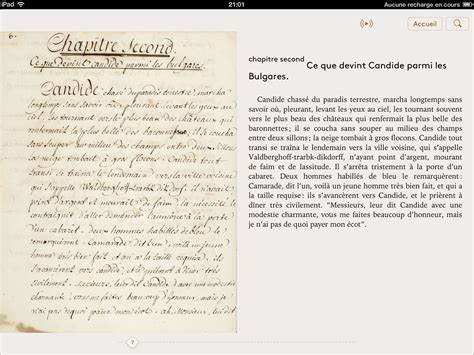 iPad
21:01
Aucune recharge en cours
Accueil
6.
Chapitre Second.
Ce que devint Candide parmi les bulgares.
Candide chassé du paradis terrestre, marcha
longtemps sans savoir où, pleurant, levant les yeux au
ciel, les tournant souvent vers le plus beau des châteaux
qui renfermait la plus
belle des baronnettes; il se coucha
sans souper au milieu des champs entre deux
sillons; la neige tombait à gros flocons. Candide tout
transi se traîna le lendemain vers la ville voisine
qui s'appelle Waldberghoff-trarbk-dikdorff, n'ayant
point d'argent, mourant de faim, de lassitude
il s'arrêta tristement à la porte
d'un cabaret. deux hommes habillés de bleu le
remarquèrent: Camarade, dit l'un, voilà un jeune
homme très bien fait et qui a la taille requise. ils
s'avancèrent vers Candide, et le prièrent à diner
très civilement. Messieurs, leur dit Candide avec une modestie
charmante, vous me faites beaucoup d'honneur, mais je
n'ai pas de quoi payer mon écot. Ah, Monsieur, lui dit
chapitre second
Ce que devint Candide parmi les
Bulgares.
Candide chassé du paradis terrestre, marcha longtemps sans
savoir où, pleurant, levant les yeux au ciel, les tournant souvent
vers le plus beau des châteaux qui renfermait la plus belle des
baronnettes; il se coucha sans souper au milieu des champs
entre deux sillons; la neige tombait à gros flocons. Candide tout
transi se traîna le lendemain vers la ville voisine, qui s'appelle
Valdberghoff-trarbk-dikdorff, n'ayant point d'argent, mourant
de faim et de lassitude. Il s'arrêta tristement à la porte d'un
cabaret. Deux hommes habillés de bleu le remarquèrent:
Camarade, dit l'un, voilà un jeune homme très bien fait, et qui a
la taille requise: ils s'avancèrent vers Candide et le prièrent à
dîner très civilement. “Messieurs, leur dit Candide avec une
modestie charmante, vous me faites beaucoup d'honneur, mais
je n'ai pas de quoi payer mon écot”.
7